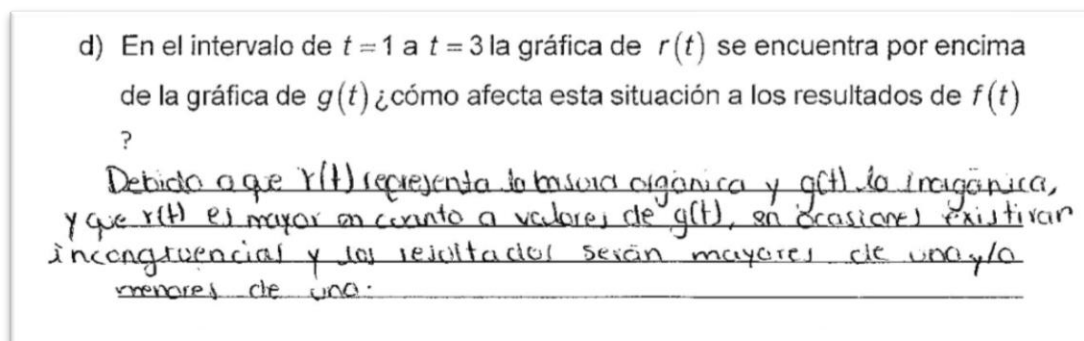 d) En el intervalo de t = 1 a t = 3 la gráfica de r(t) se encuentra por encima
de la gráfica de g(t) ¿cómo afecta esta situación a los resultados de f(t)
?
Debido a que r(t) representa la basura orgánica y g(t) la inorgánica,
y que r(t) es mayor en cuanto a valores de g(t), en ocasiones existiran
incongruencias y los resultados serán mayores de uno y/o
menores de uno.